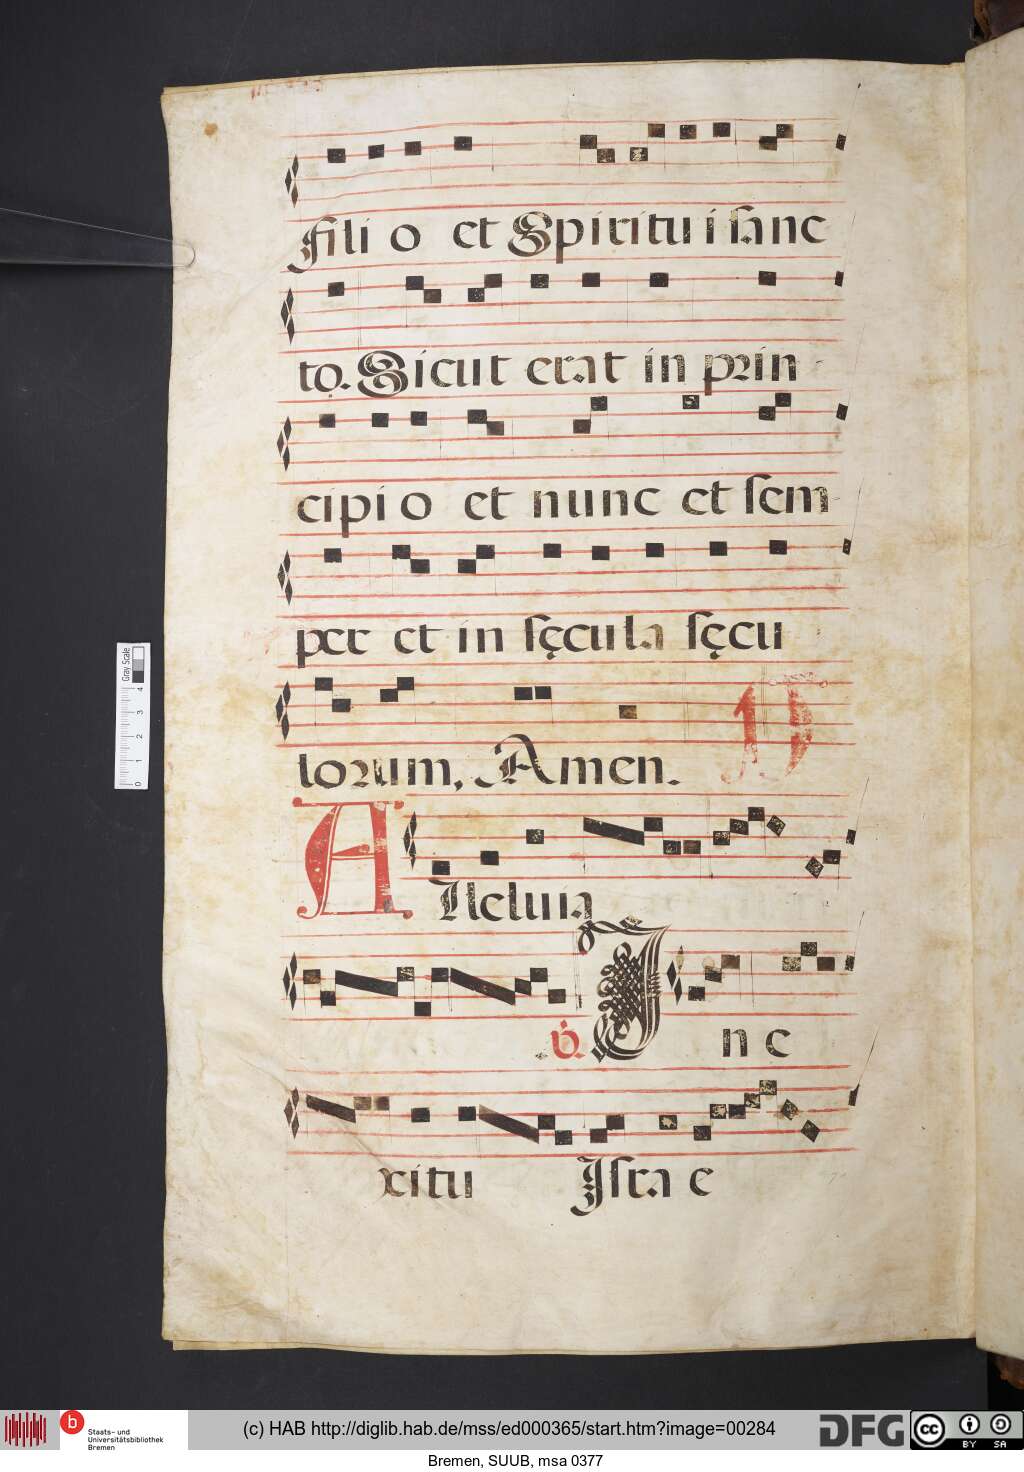 filio et Spiritui sanc
to. Sicut erat in prin
cipio et nunc et sem
per et in sęcula sęcu
lorum, Amen.
Alleluia
℣. In e
xitu Isra e
Gray Scale
0 1 2 3 4
b
Staats- und
Universitätsbibliothek
Bremen
(c) HAB http://diglib.hab.de/mss/ed000365/start.htm?image=00284
DFG
cc BY SA
Bremen, SUUB, msa 0377